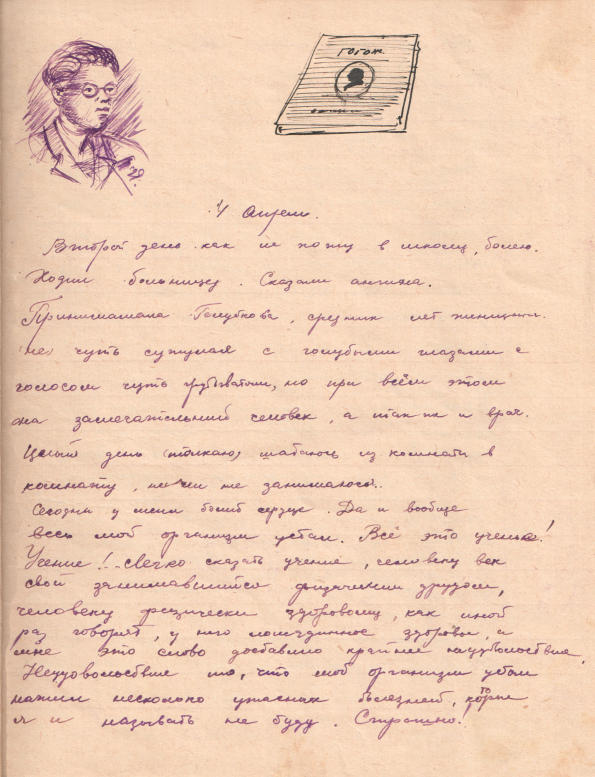 ГОГОЛ
4 Апреля.
Второй день как не хожу в школу, болею.
Ходил больницу. Сказали ангина.
Принимала Голубкова, средних лет женщина.
чуть сутулая с голубыми глазами с
голосом чуть грубоватым, но при всём этом
она замечательний человек, а так же и врач.
Целый день (толкаю) шатаюсь из комнаты в
комнату, ни чем не занимаюсь..
Сегодня у меня болит сердце. Да и вообще
весь мой организм устал. Всё это ученье!
Учение!... Легко сказать учение, человеку век
свой занимавшийся физическим трудом,
человеку физически здоровому, как иной
раз говорят, у него лошадинное здоровье, а
мне это слово доставило крайнее неудовольствие.
Неудовольствие то, что мой организм устал
нажил несколько ужасных болезней, которые
я и называть не буду. Страшно!